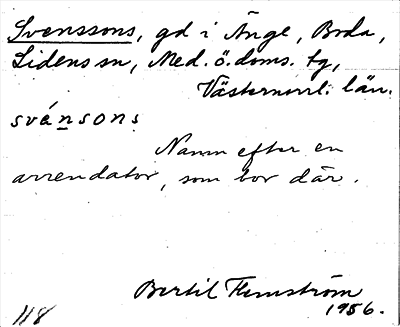 Svenssons, gd i Änge, Boda,
Lidens sn, Med. ö. doms. tg,
Västernorrl. län.
svánsons
Namn efter en
arrendator, som bor där.
Bertil Flemström
1956.
118